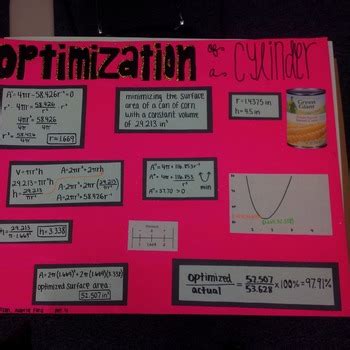 optimization of
as a cylinder
A' = 4πr - 58.426r⁻² = 0
4πr = 58.426/r²
4πr³/4π = 58.426/4π
r³ = 58.426/4π
r = 1.669
minimizing the surface
area of a can of corn
with a constant volume
of 29.213 in³
r = 1.4375 in
h = 4.5 in
Green Giant
V = πr²h
29.213 = πr²h
h = 29.213/πr²
A = 2πr² + 2πrh
A = 2πr² + 2πr(29.213/πr²)
A = 2πr² + 58.426r⁻¹
A" = 4π + 116.852r⁻³
A" = 4π + 116.852/r³
A" = 37.70 > 0
min
h = 29.213/π·1.669²
h = 3.338
A = 2π(1.669)² + 2π(1.669)(3.338)
optimized surface area:
52.507 in²
optimized/actual = 52.507/53.628 × 100% = 97.91%